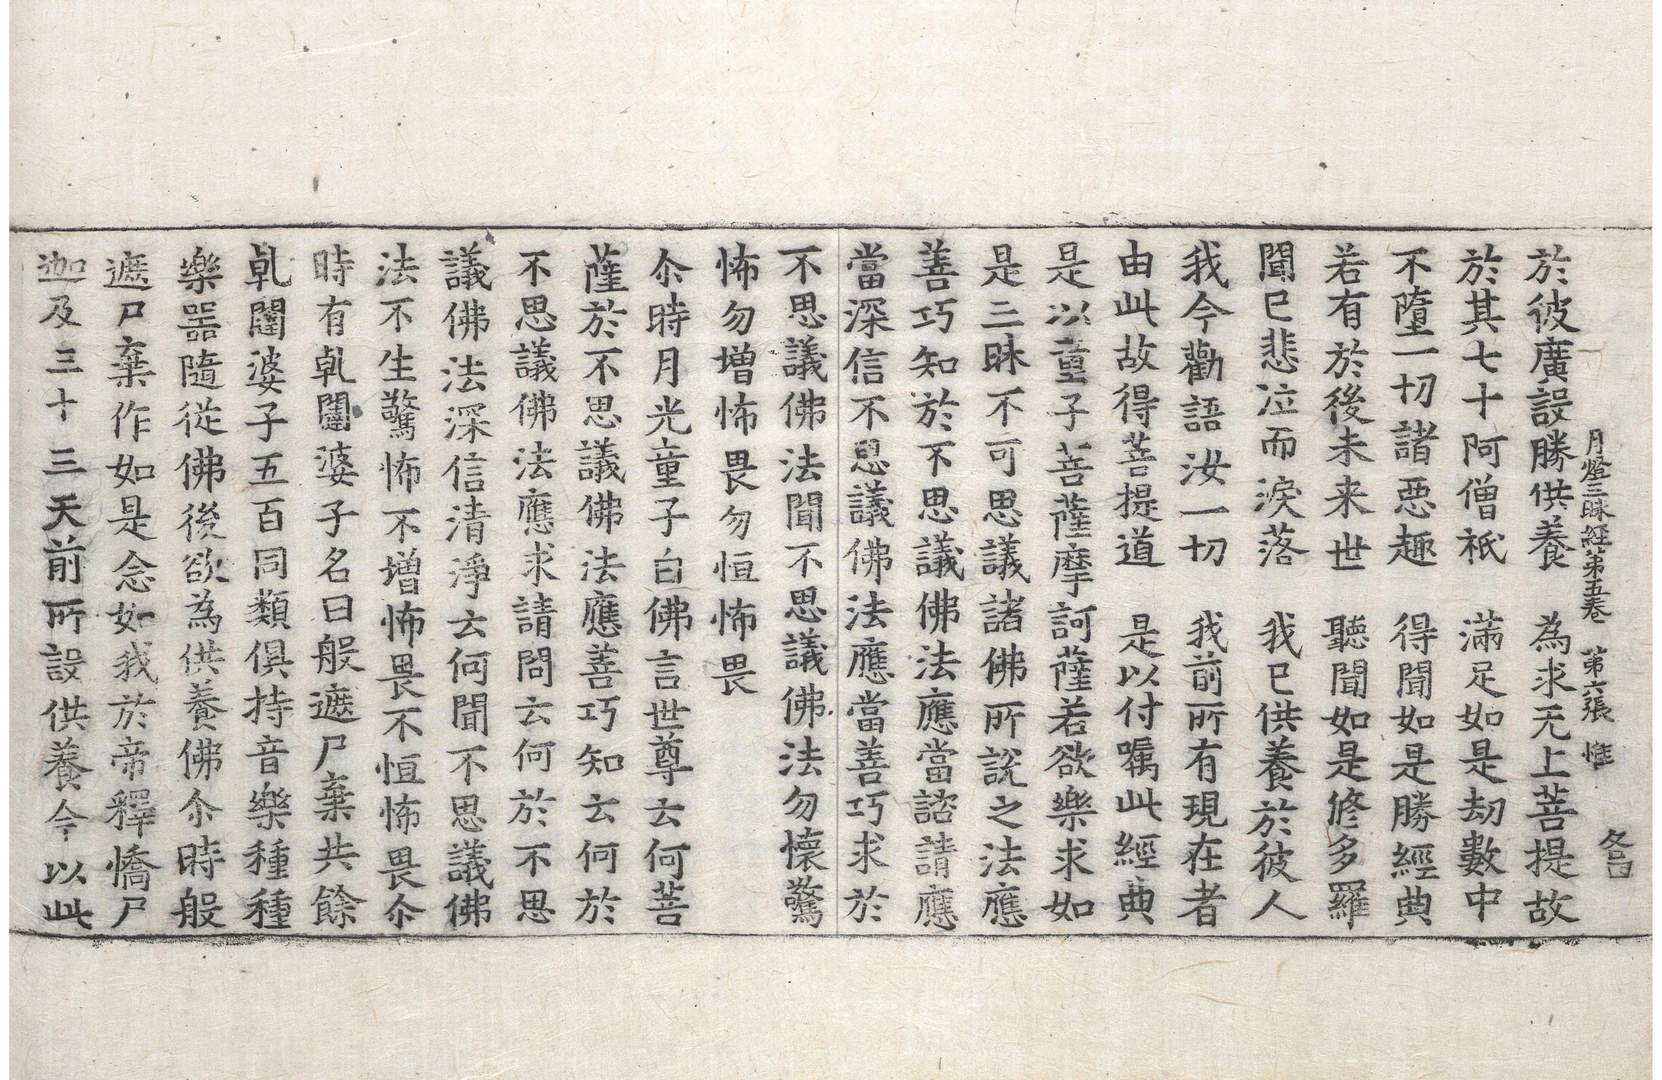 月燈三昧經第五卷　第六張　惟
於彼廣設勝供養　為求无上菩提故
於其七十阿僧祇　滿足如是劫數中
不墮一切諸惡趣　得聞如是勝經典
若有於後未来世　聽聞如是修多羅
聞已悲泣而淚落　我已供養於彼人
我今勸語汝一切　我前所有現在者
由此故得菩提道　是以付嘱此經典
是以童子菩薩摩訶薩若欲樂求如
是三昧不可思議諸佛所說之法應
善巧知於不思議佛法應當諮請應
當深信不思議佛法應當善巧求於
不思議佛法聞不思議佛法勿懷驚
怖勿增怖畏勿恒怖畏
尒時月光童子白佛言世尊云何菩
薩於不思議佛法應善巧知云何於
不思議佛法應求請問云何於不思
議佛法深信清淨云何聞不思議佛
法不生驚怖不增怖畏不恒怖畏尒
時有乹闥婆子名曰般遮尸棄共餘
乹闥婆子五百同類俱持音樂種種
樂器隨從佛後欲為供養佛尒時般
遮尸棄作如是念如我於帝釋憍尸
迦及三十三天前所設供養今以此